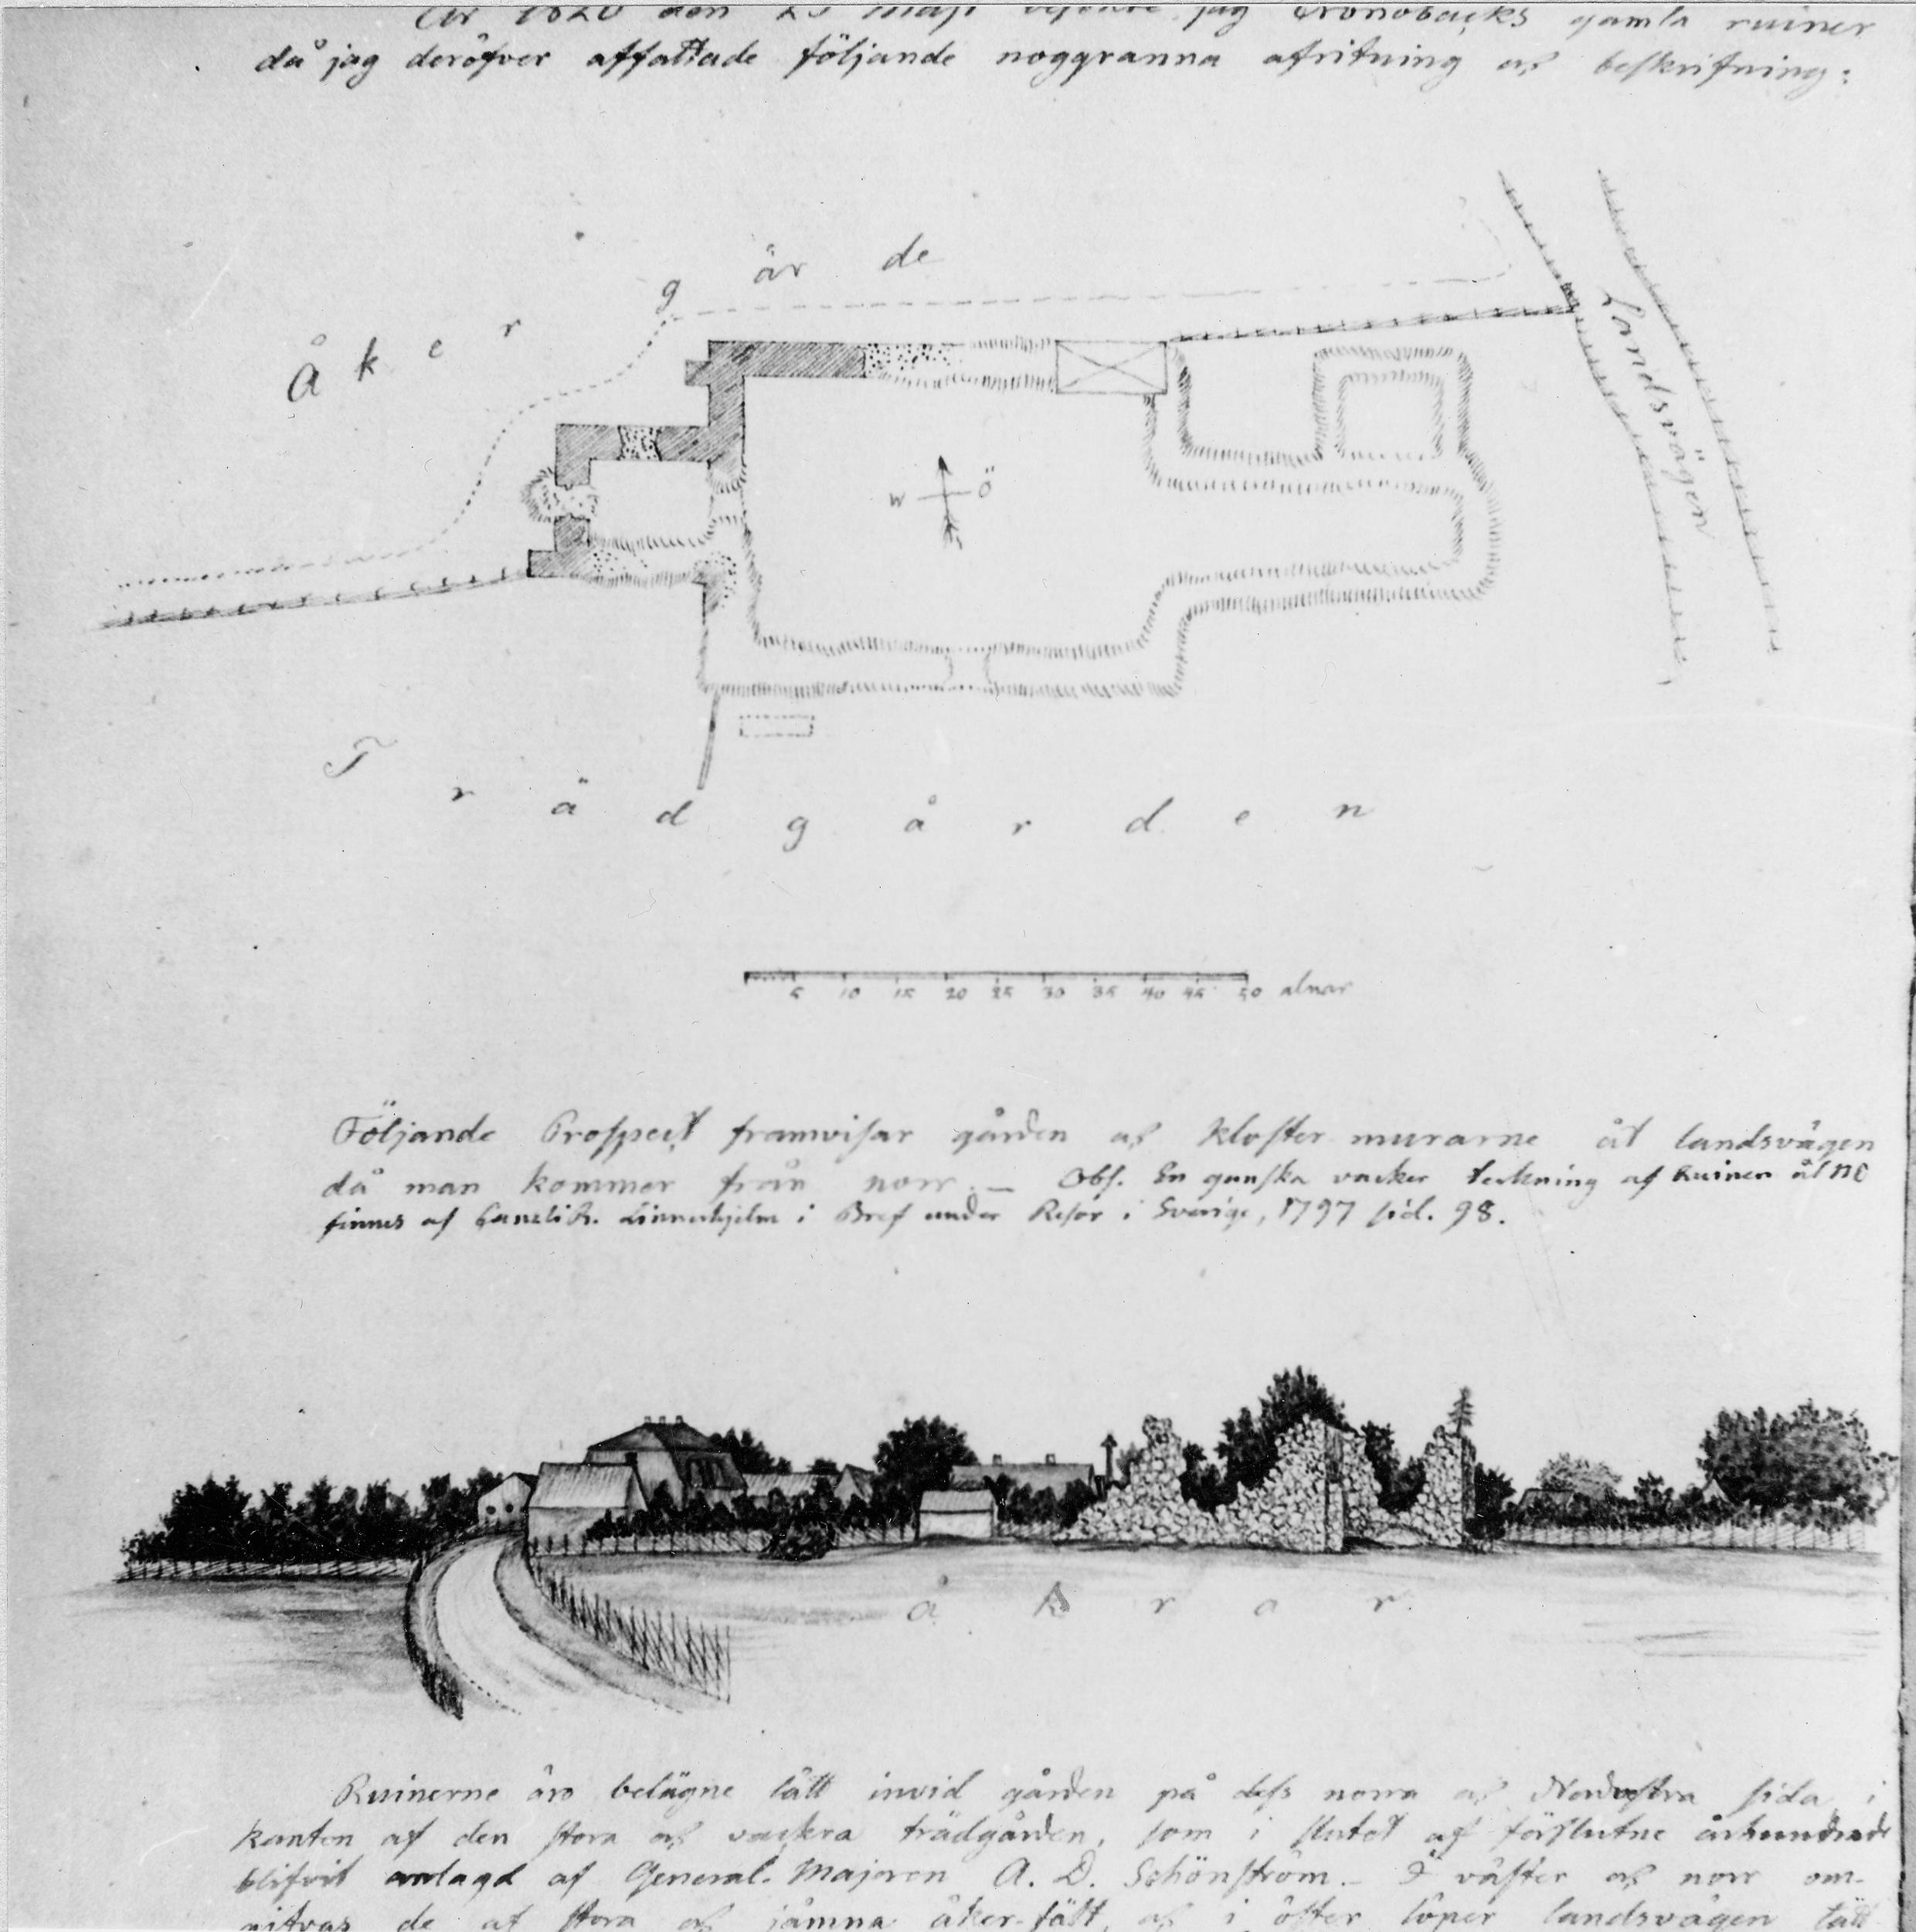 År 1820 den 25 maji besökte jag Cronobäcks gamla ruiner
då jag deröfver affattade följande noggranna afritning och beskrifning:
Åkergärde
Landsvägen
W Ö
Trädgården
5 10 15 20 25 30 35 40 45 50 alnar
Följande Prospect framvisar gården och kloster murarne åt landsvägen
då man kommer från norr. — Obs. En ganska vacker teckning af Ruinen åt NO
finnes af CanzliR. Linnerhjelm i Bref under Resor i Sverige, 1797 sid. 98.
åkrar
Ruinerne äro belägne tätt invid gården på dess norra och Nordvestra sida i
kanten af den stora och vackra trädgården, som i slutet af förflutne århundrade
blifvit anlagd af General-Majoren A. D. Schönström. – I väster och norr om-
gifvas de af stora och jämna åker-fält, och i öster löper landsvägen tätt